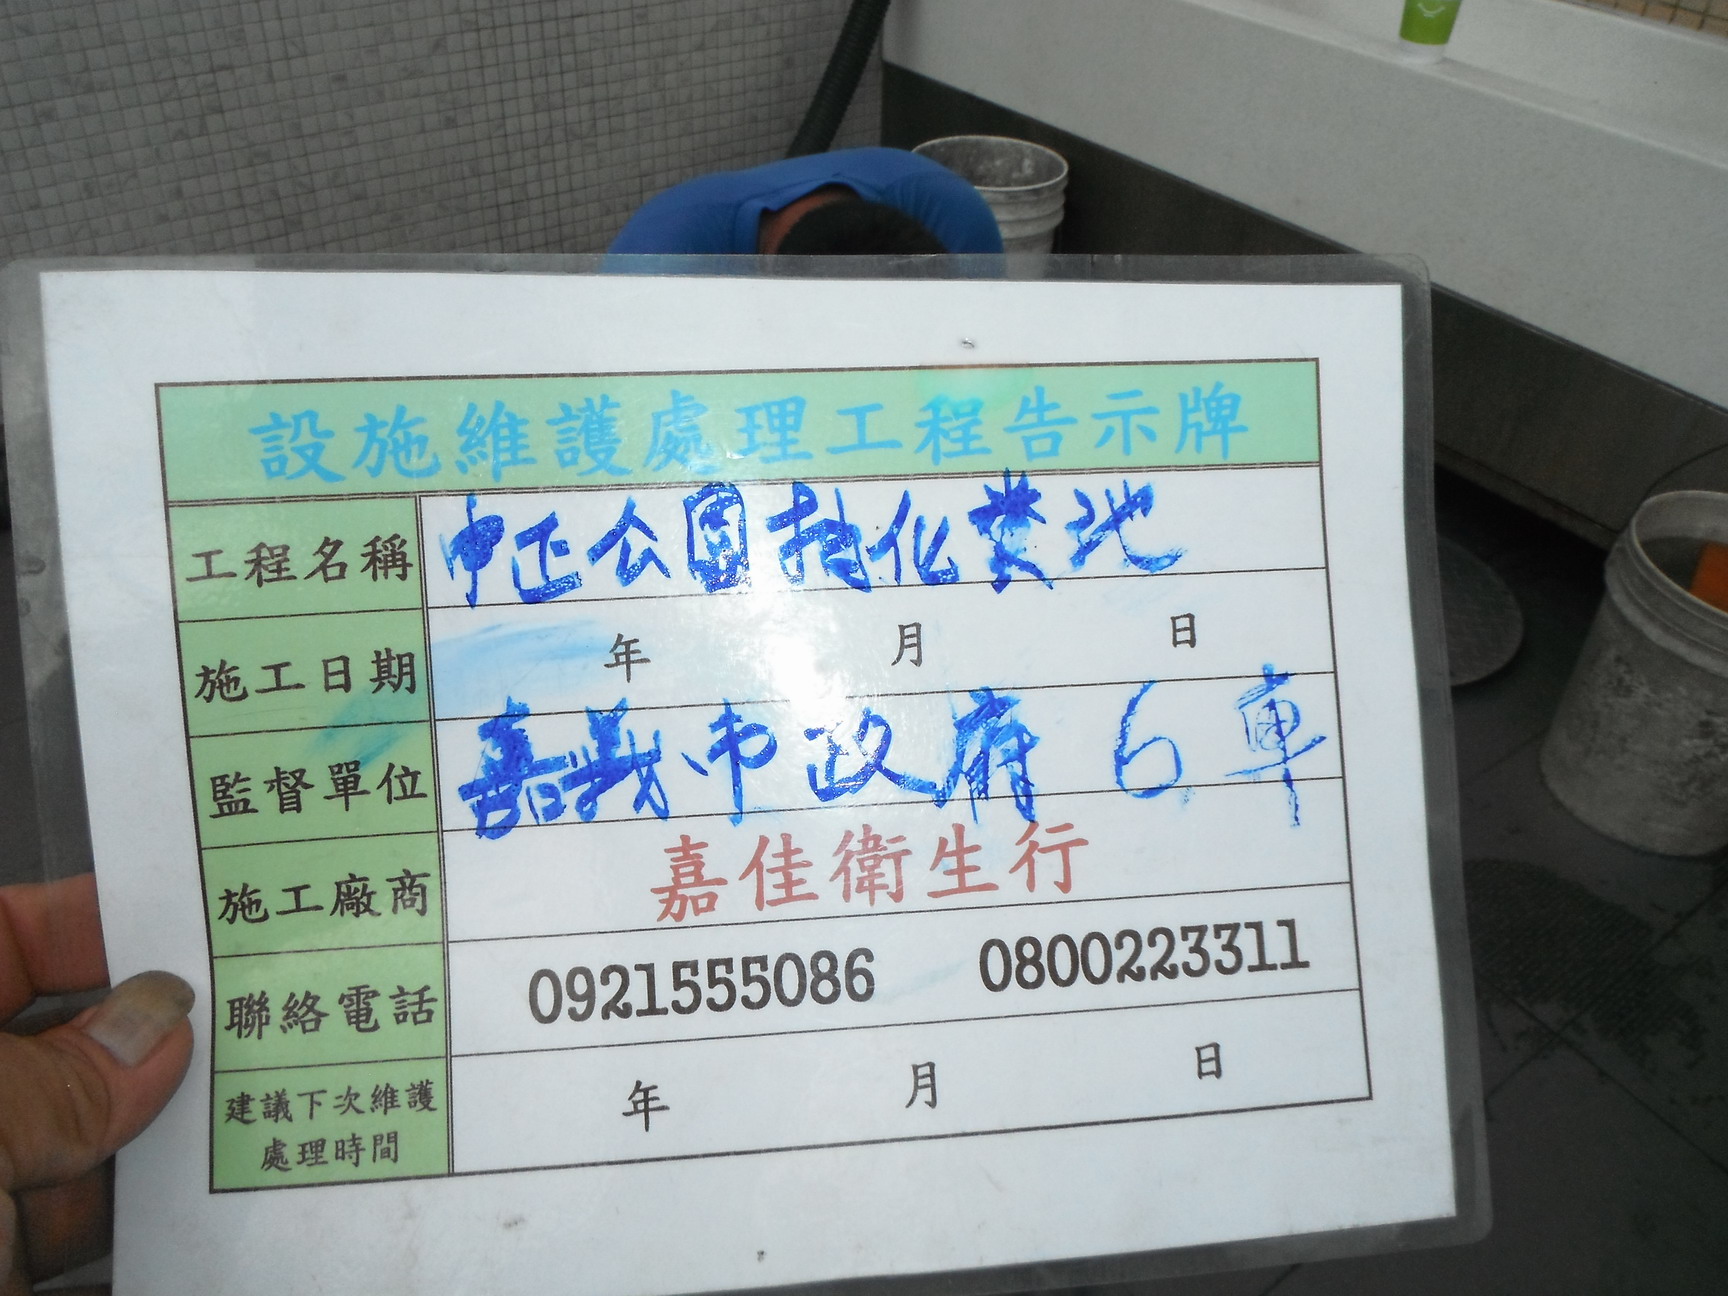 設施維護處理工程告示牌
工程名稱 中正公園抽化糞池
施工日期 年 月 日
監督單位 嘉義市政府 6車
施工廠商 嘉佳衛生行
聯絡電話 0921555086 0800223311
建議下次維護
處理時間 年 月 日